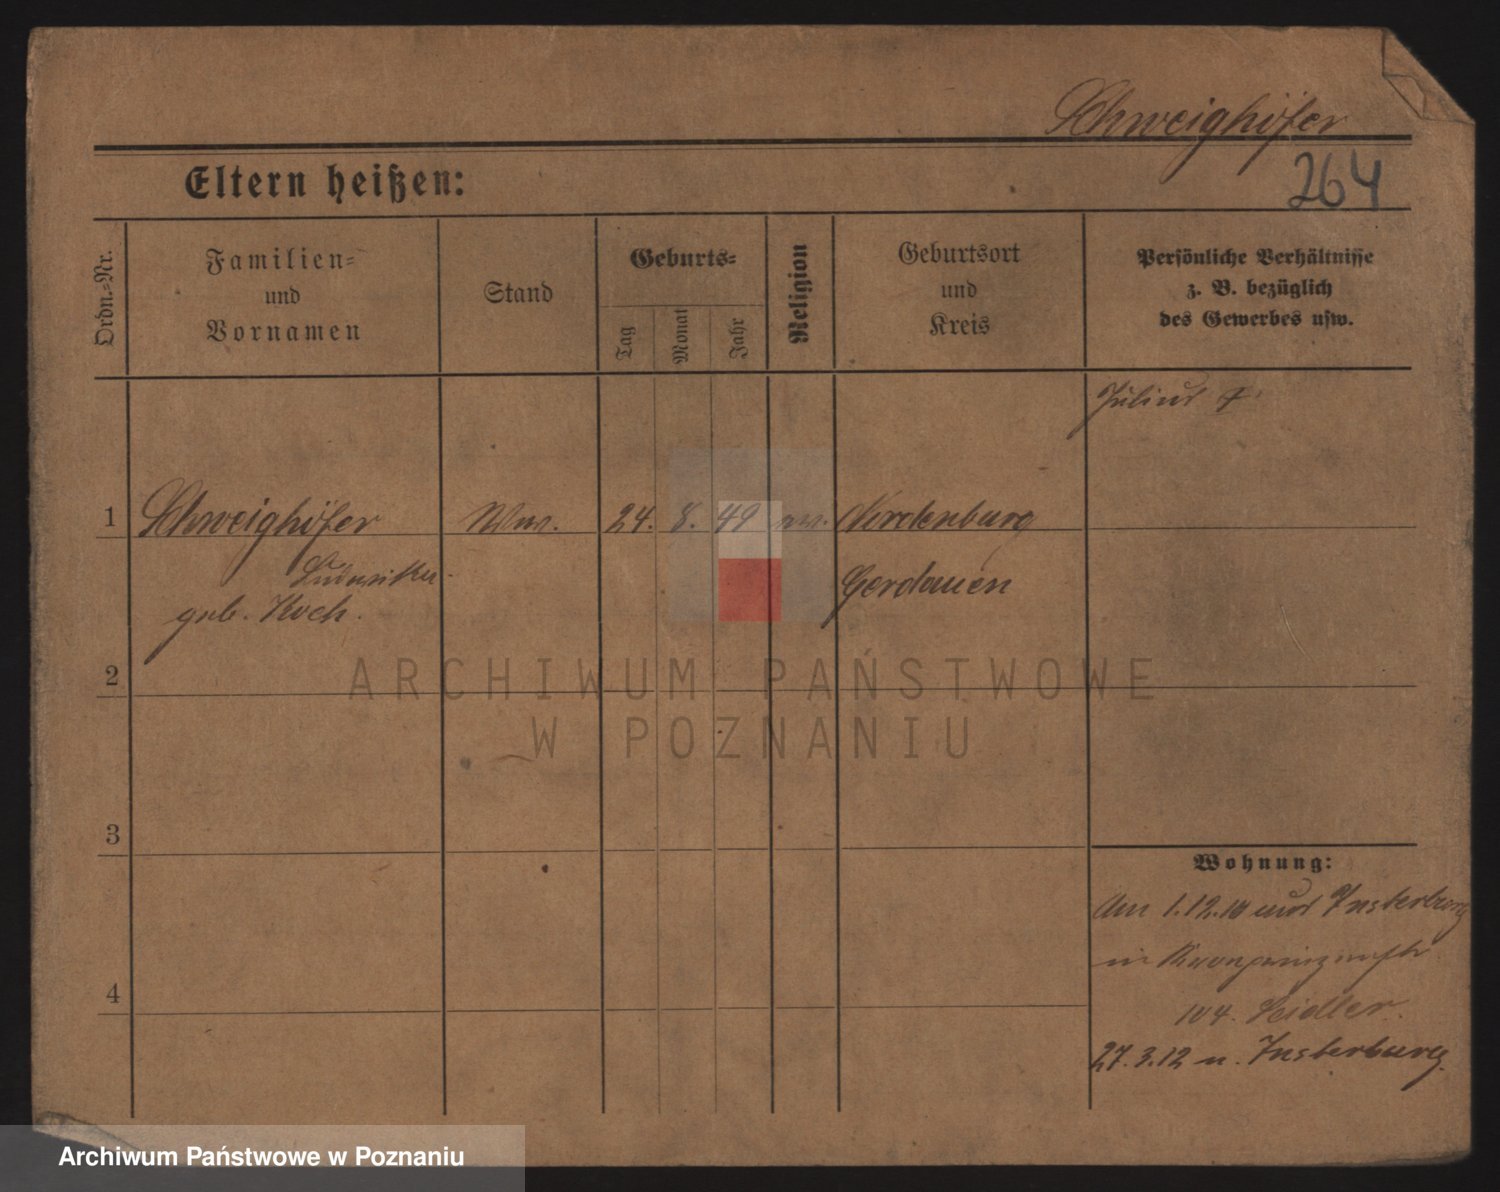 Schweighöfer
264
Eltern heißen:
Ordn.-Nr.
Familien-
und
Vornamen
Stand
Geburts-
Tag
Monat
Jahr
Religion
Geburtsort
und
Kreis
Persönliche Verhältnisse
z. B. bezüglich
des Gewerbes usw.
Julius †
1
Schweighöfer
Ww.
24.
8.
49
ev.
Nordenburg
geb. Koch.
Gerdauen
2
ARCHIWUM PAŃSTWOWE
W POZNANIU
3
Wohnung:
Am 1.12.10 aus Insterburg
in Kronprinzenstr
104. Seidler.
27.3.12 n. Insterburg.
4
Archiwum Państwowe w Poznaniu